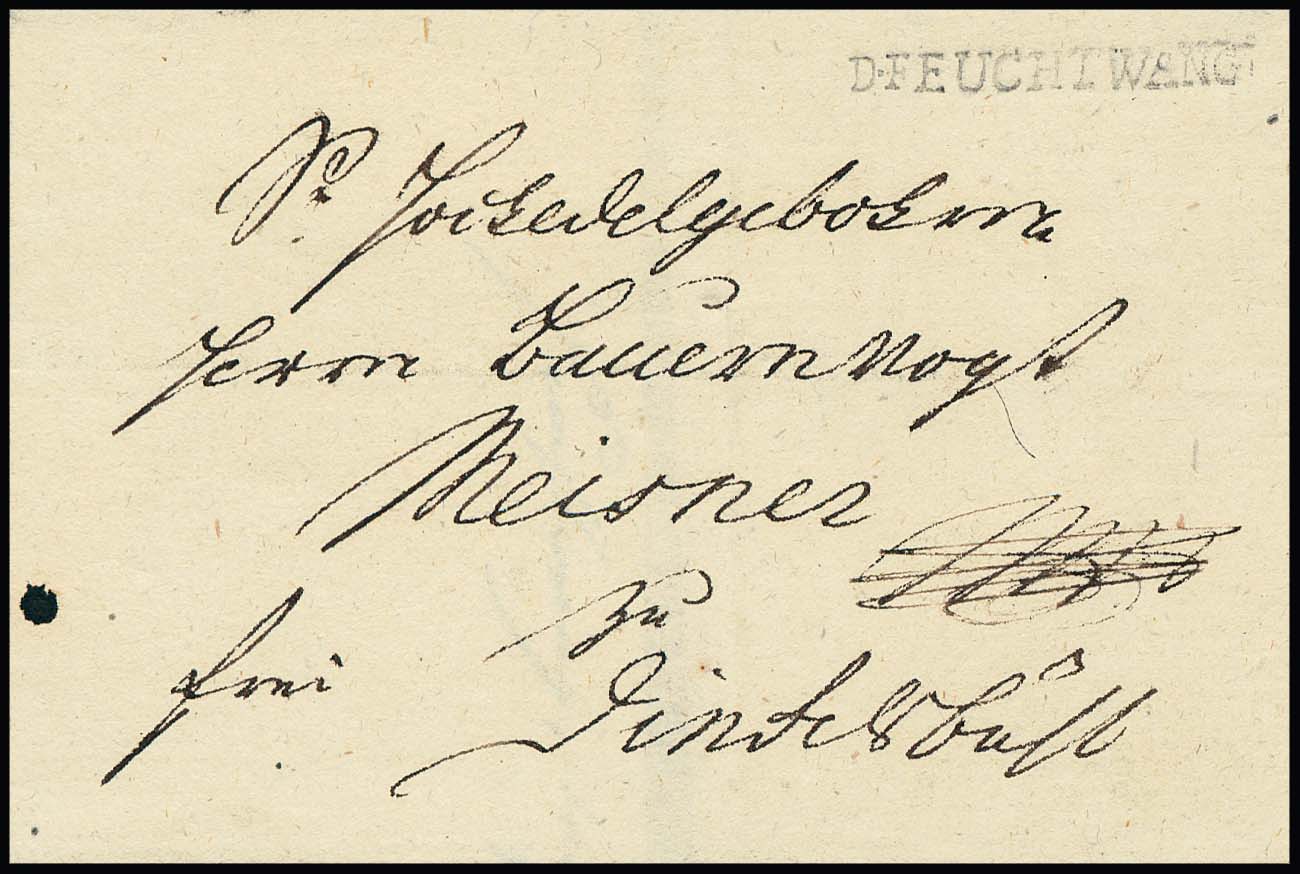 D·FEUCHTWANG
Sr Hochedelgebohrn
Herrn Bauernvogt
Meisner
zu
frei Dinkelsbühl